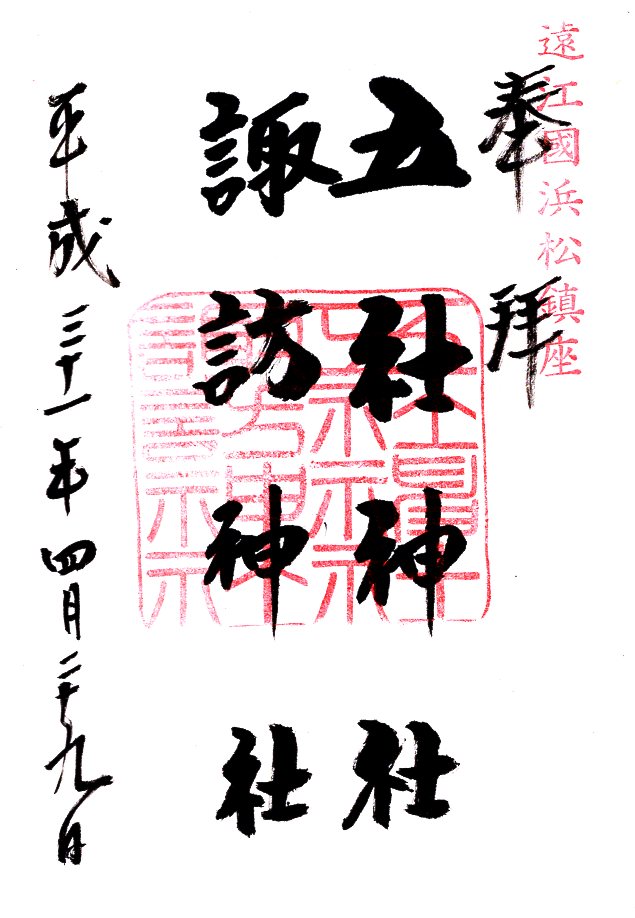 遠江國浜松鎮座
奉拝
五社神社
諏訪神社
平成三十一年四月二十九日